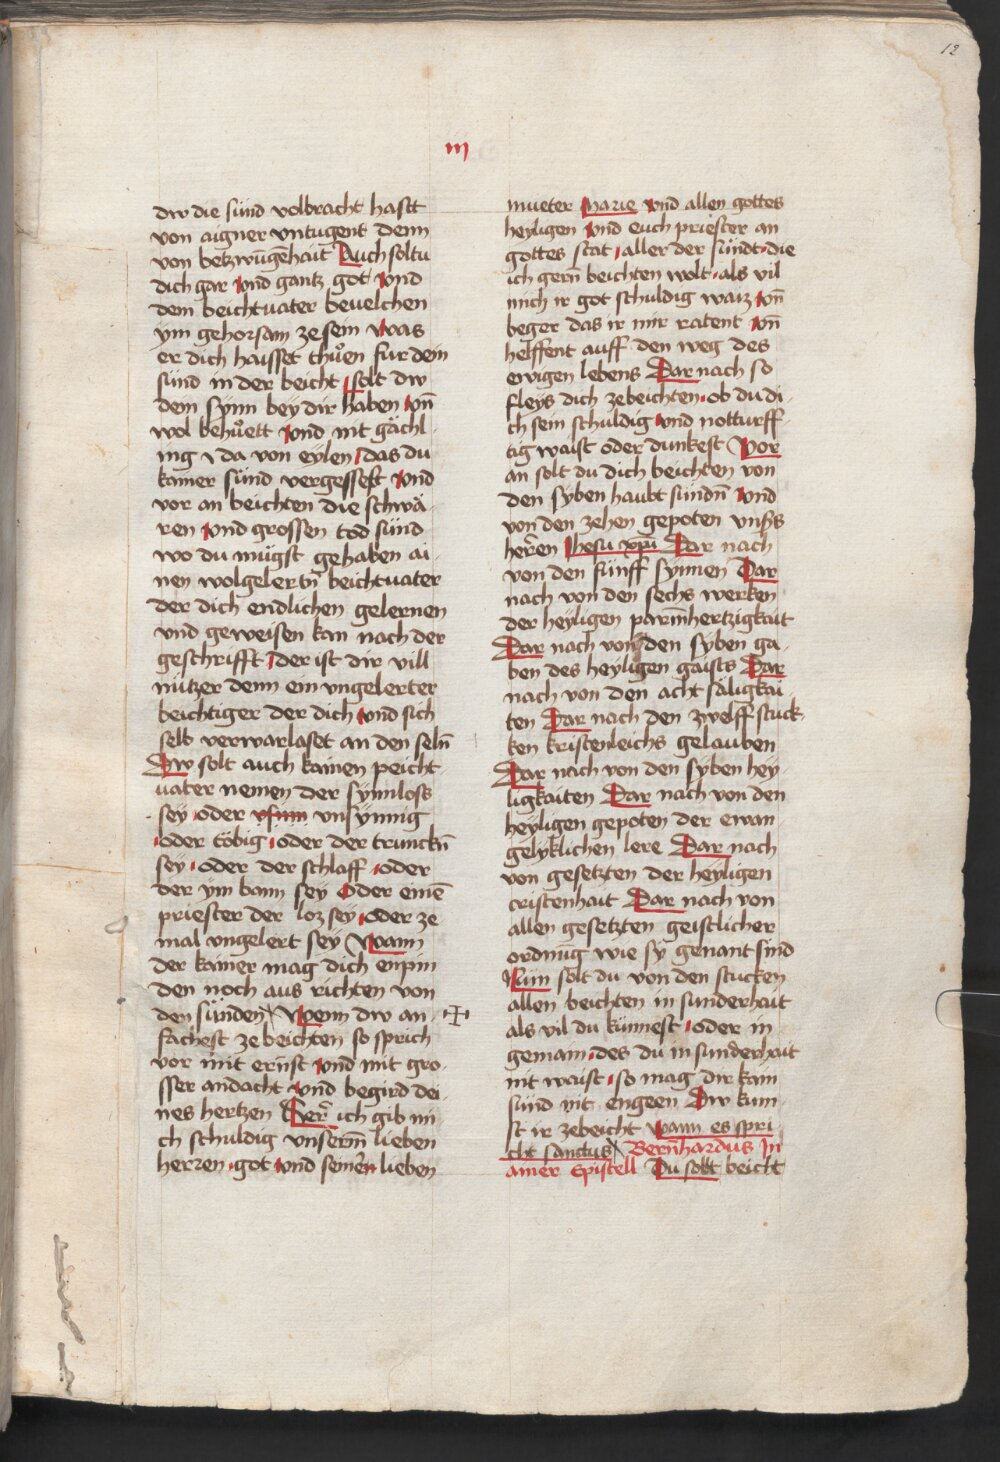 12
iij
dw die sünd volbracht hastt
von aigner vntugent denn
von beczwūgēhait Auch soltu
dich gar vnd gantz got vnd
dem beichtuater beuelchen
ym gehorsam ze sein was
er dich haisset thůen fur dein
sünd in der beicht solt dw
dem synn bey dir haben vn̄
wol behůett vnd nit gächl
ing v da von eylen das du
kainer sünd vergessest vnd
vor an beichten die schwä
ren vnd grossen tod sünd
wo du mügst gehaben ai
nen wolgelertn̄ beichtuater
der dich endlichen gelernen
vnd geweisen kan nach der
geschrifft der ist dir vill
nützer denn ein vngelerter
beichtiger der dich vnd sich
selb verwarlaset an den seln̄
Dw solt auch kainen peicht
uater nemen der synnloss
sey oder vnsynnig
oder töbig oder der trunckn̄
sey oder der schlaff oder
der ym bann sey Oder einē
priester der loz sey oder ze
mal vngelert sey Wann
der kainer mag dich enpin
den noch aus richten von
den sünden Wenn dw an
fachest ze beichten so sprich
vor mit ernst vnd mit gro
sser andacht vnd begird dei
nes hertzen Her̄ ich gib mi
ch schuldig vnserm̄ lieben
herren got vnd seinen lieben
mueter Marie vnd allen gottes
heyligen vnd euch priester an
gottes stat aller der sündt die
ich gern̄ beichten wolt als vil
mich ir got schuldig waiz vn̄
beger das ir mir ratent vn̄
helffent auff den weg des
ewigen lebens Dar nach so
fleys dich ze beichten ob du di
ch sein schuldig vnd notturff
tig waist oder dunkest Vor
an solt du dich beichten von
den syben haubt sündn̄ vnd
von den zehen gepoten vnsers
herren Jhesu xp̄ī Dar nach
von den fünff synnen Dar
nach von den sechs werken
der heyligen parm̄hertzigkait
Dar nach von den syben ga
ben des heyligen gaists Dar
nach von den acht säligkai
ten Dar nach den zwelff stuck
ken kristenleichs gelauben
Dar nach von den syben hey
ligkaiten Dar nach von den
heyligen gepoten der ewan
gelyklichen lere Dar nach
von gesetzten der heyligen
cristenhait Dar nach von
allen gesetzten geistlicher
ordnūg wie sy genant sind
Nun solt du von den stucken
allen beichten in sunderhait
als vil du künnest oder in
gemain des du in sunderhait
nit waist so mag dir kain
sünd nit engeen Dw kum
st ir ze beicht wann es spri
cht sanctus Bern̄hardus In
ainer Epistell Du solt beicht